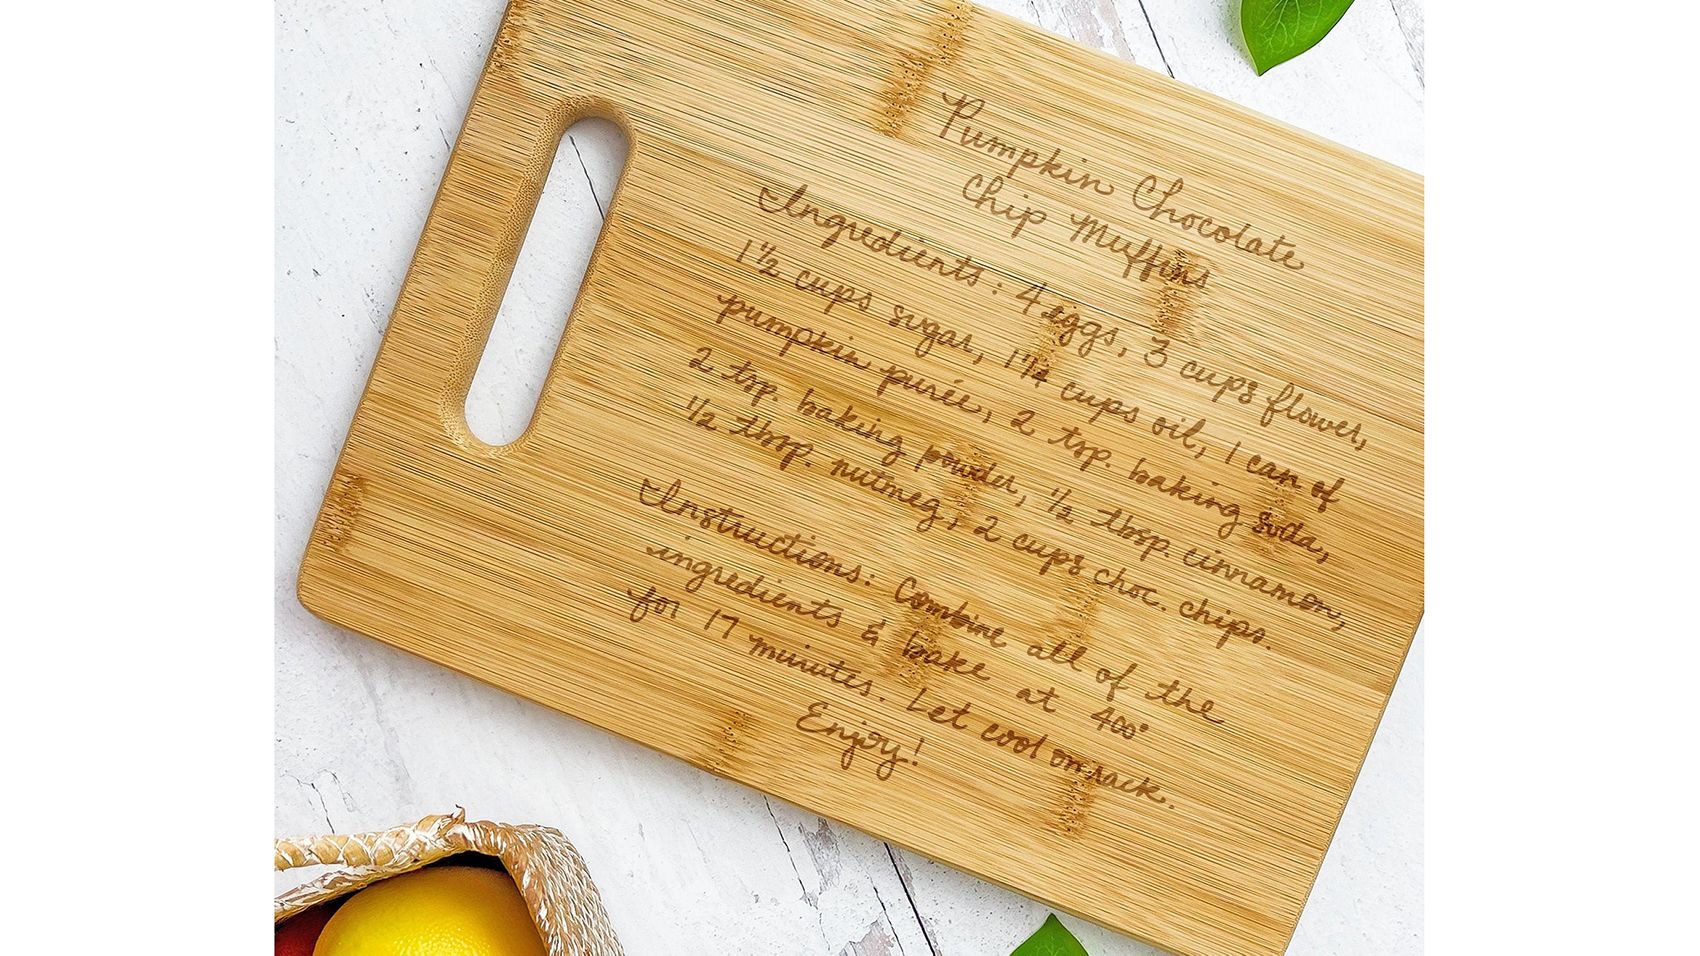 Pumpkin Chocolate
Chip Muffins
Ingredients: 4 eggs, 3 cups flower,
1 1/2 cups sugar, 1 1/4 cups oil, 1 can of
pumpkin purée, 2 tsp. baking soda,
2 tsp. baking powder, 1/2 tbsp. cinnamon,
1/2 tbsp. nutmeg, 2 cups choc. chips.
Instructions: Combine all of the
ingredients & bake at 400°
for 17 minutes. Let cool on rack.
Enjoy!